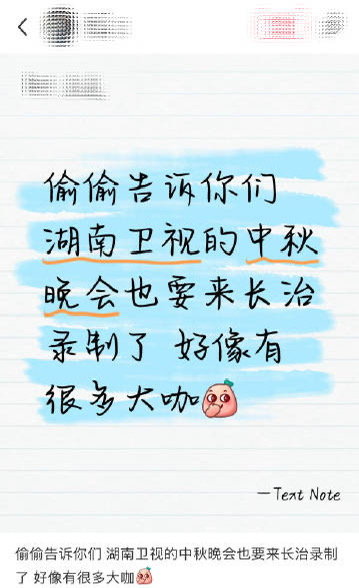 偷偷告诉你们
湖南卫视的中秋
晚会也要来长治
录制了 好像有
很多大咖
—Text Note
偷偷告诉你们 湖南卫视的中秋晚会也要来长治录制
了 好像有很多大咖